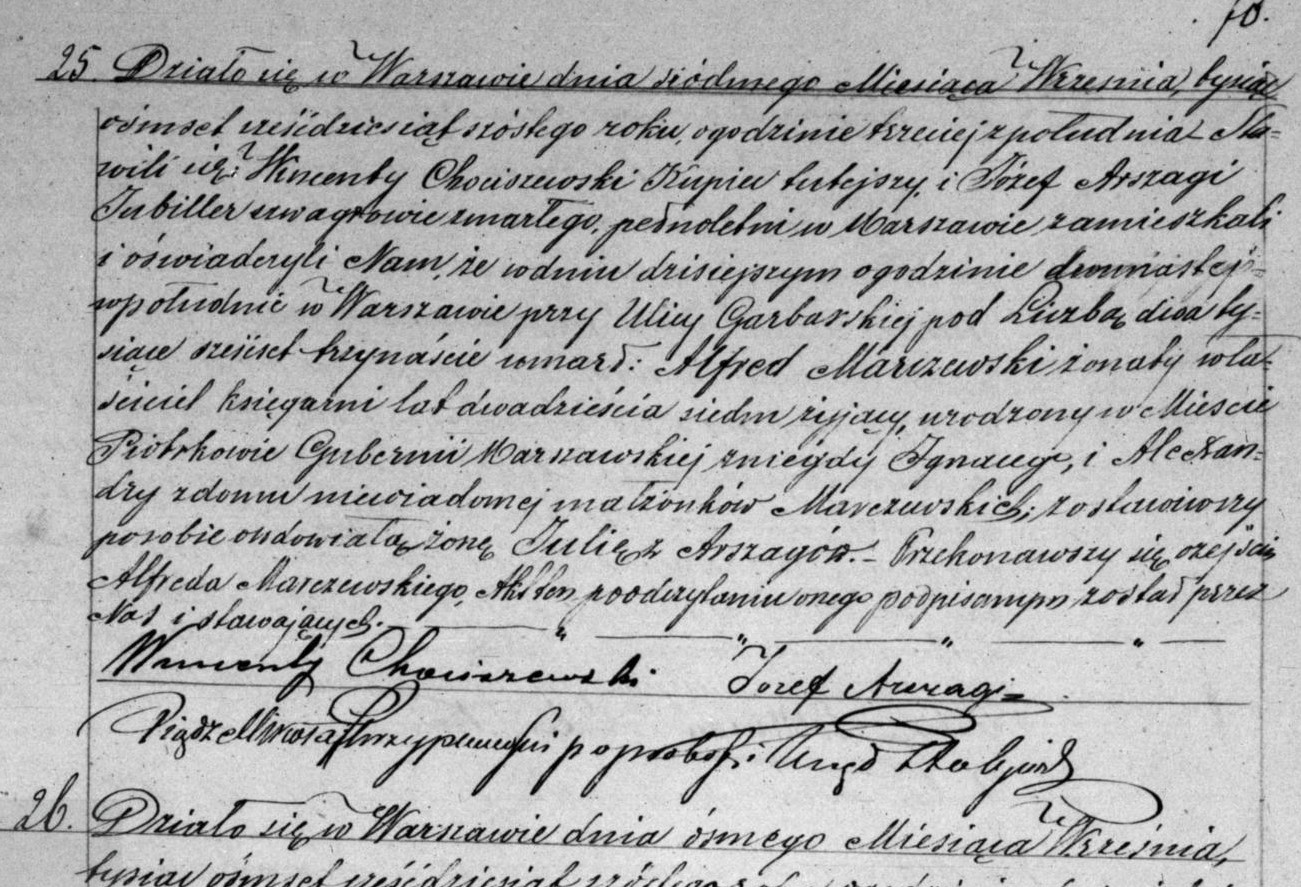 10.
25. Działo się w Warszawie dnia siódmego Miesiąca Września, tysiąc
ośmset sześćdziesiąt szóstego roku, o godzinie trzeciej z południa – Sta=
wili się: Wincenty Chociszewski Kupiec tutejszy, i Józef Arszagi
Jubiller szwagrowie zmarłego, pełnoletni w Warszawie zamieszkali
i oświadczyli Nam, że w dniu dzisiejszym o godzinie dwunastej=
w południe w Warszawie przy Ulicy Garbarskiej pod Liczbą dwa ty=
siące sześćset trzynaście umarł: Alfred Marczewski żonaty wła=
ściciel księgarni lat dwadzieścia siedm żyjący, urodzony w Mieście
Piotrkowie Gubernii Warszawskiej z niegdy Ignacego, i Alexan=
dry z domu niewiadomej małżonków Marczewskich; zostawiwszy
po sobie owdowiałą żonę Julię z Arszagów. – Przekonawszy się o zejściu
Alfreda Marczewskiego, Akt ten po odczytaniu onego podpisanym został przez
Nas i stawających.
Wincenty Chociszewski Jozef Arszagi=
Xiądz Mikołaj
26. Działo się w Warszawie dnia ósmego Miesiąca Września,
tysiąc ośmset sześćdziesiąt szóstego